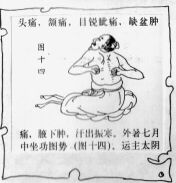 头痛，颔痛，目锐眦痛，缺盆肿
图十四
痛，腋下肿，汗出振寒，外暑七月
中坐功图势（图十四），运主太阴